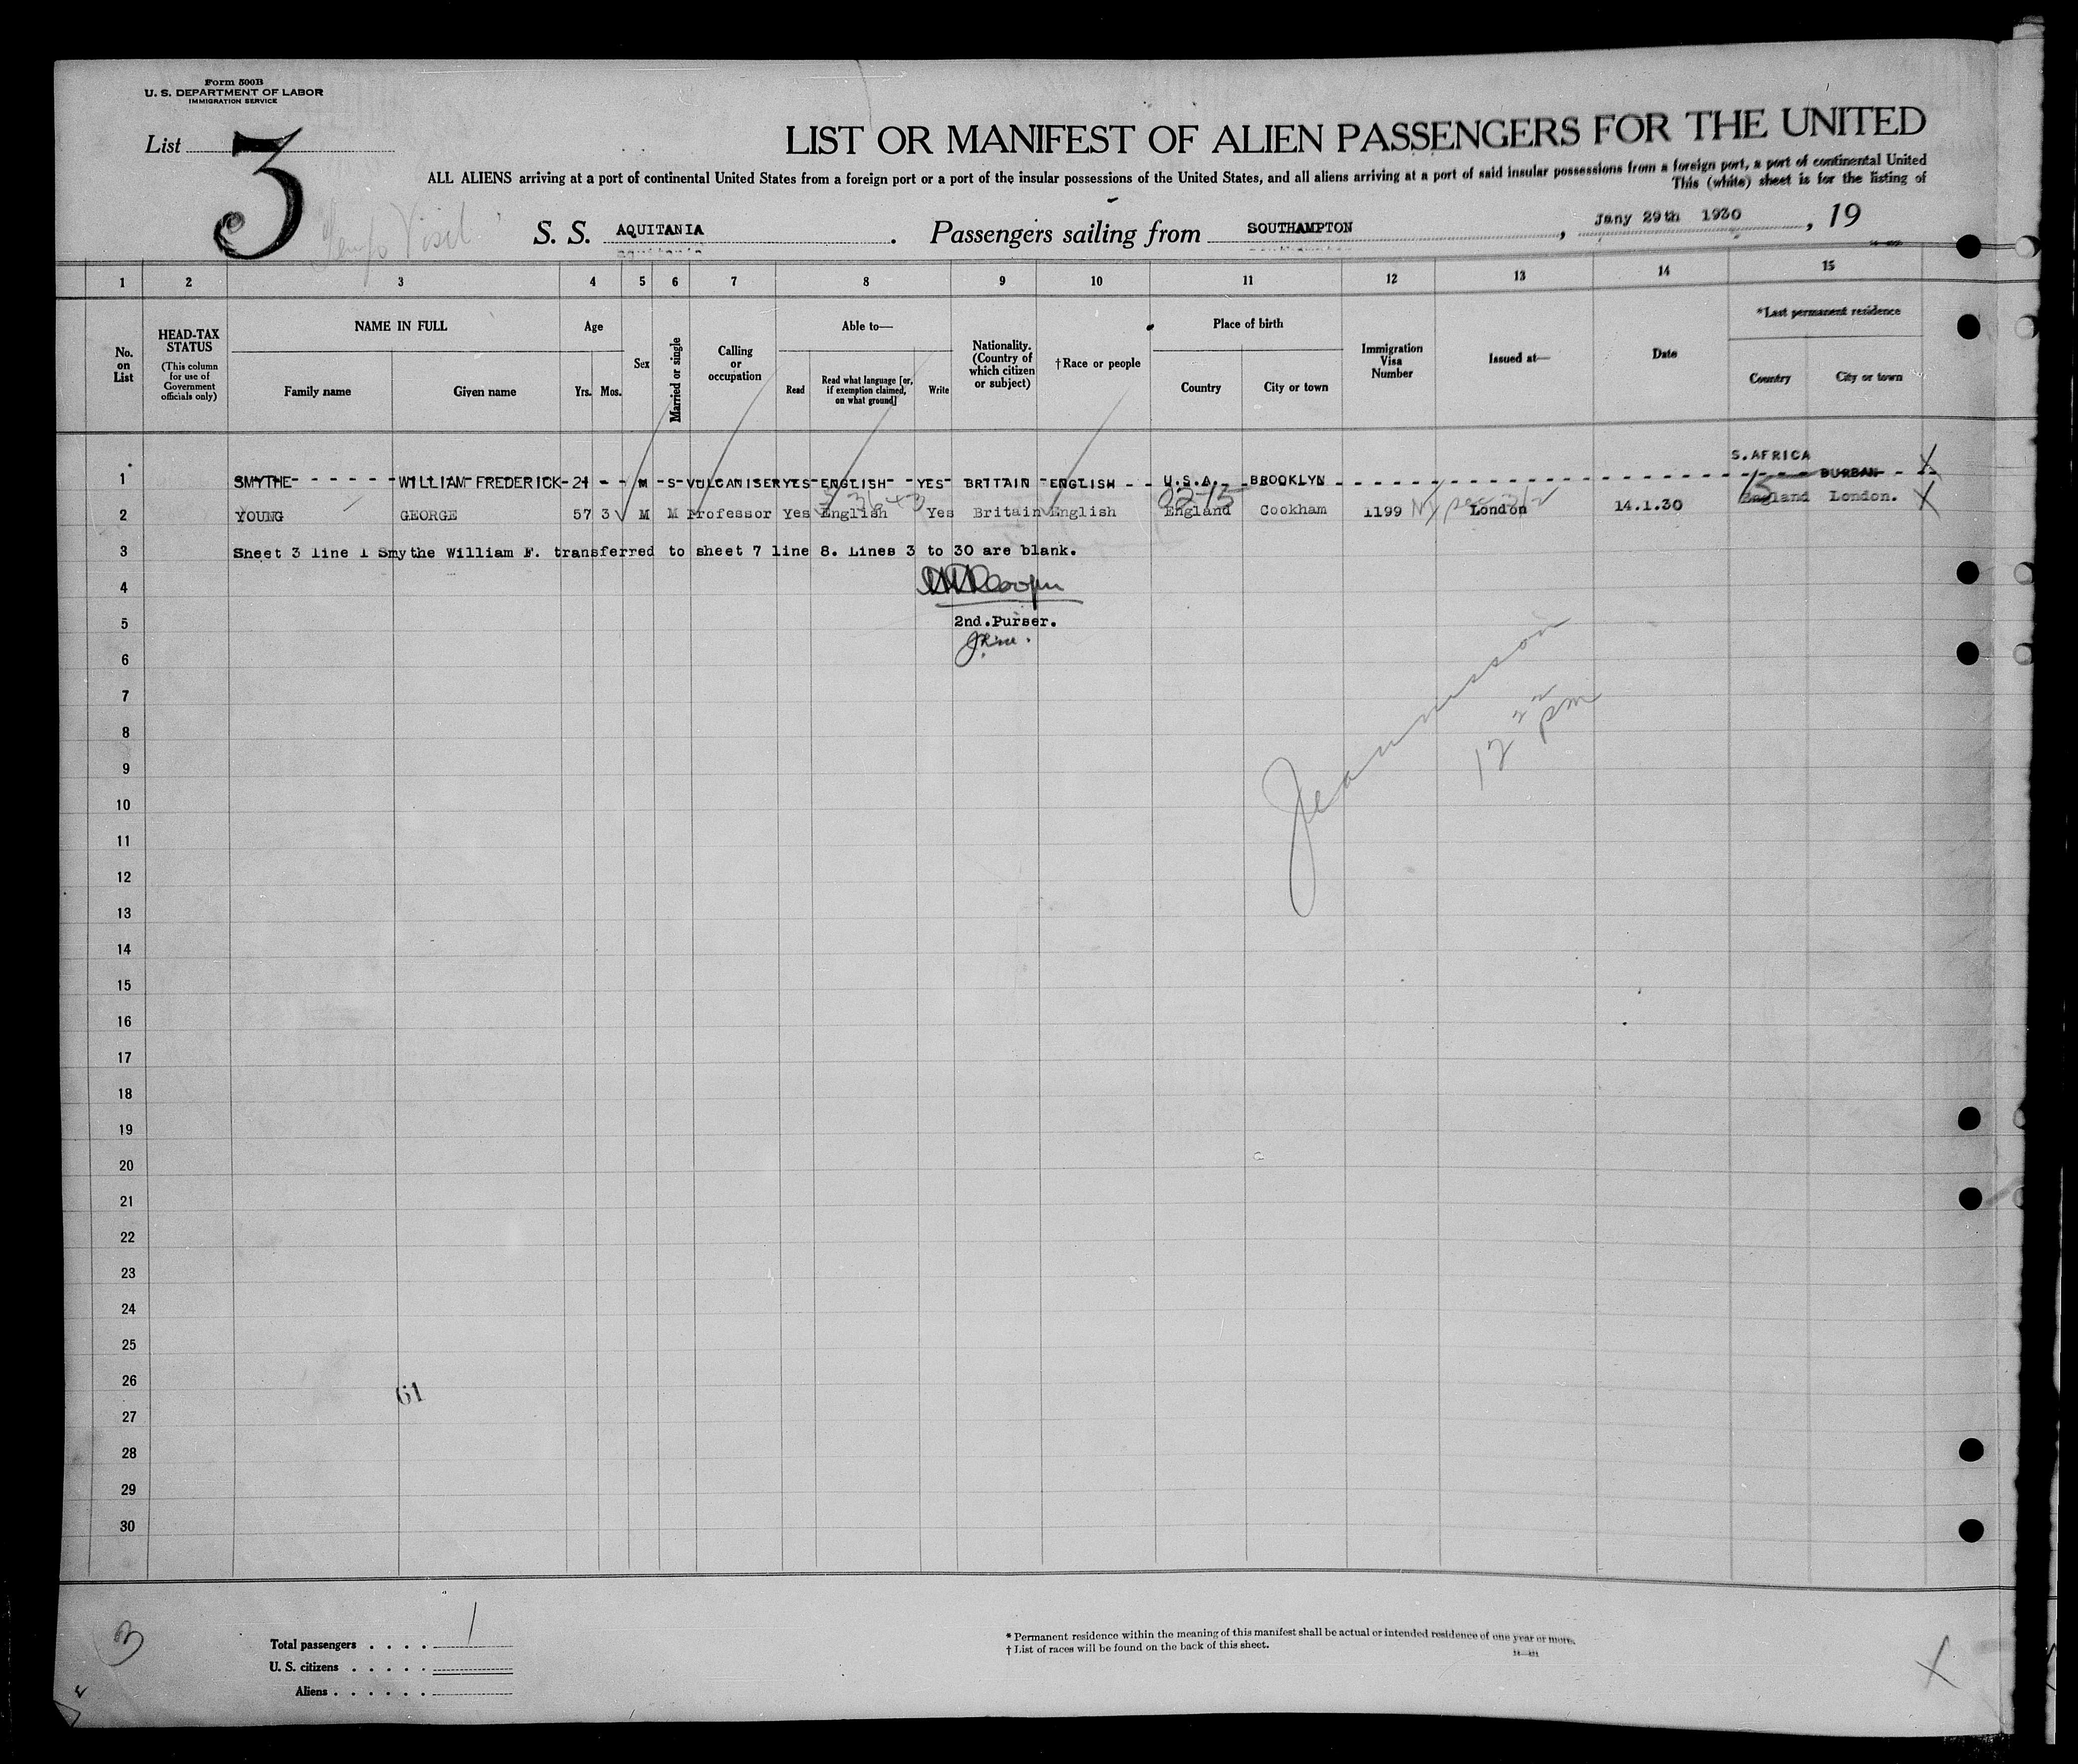 Form 500B
U. S. DEPARTMENT OF LABOR
IMMIGRATION SERVICE
List 3
LIST OR MANIFEST OF ALIEN PASSENGERS FOR THE UNITED
ALL ALIENS arriving at a port of continental United States from a foreign port or a port of the insular possessions of the United States, and all aliens arriving at a port of said insular possessions from a foreign port, a port of continental United
This (white) sheet is for the listing of
Tempo Visit
S. S. AQUITANIA . Passengers sailing from SOUTHAMPTON , Jany 29th 1930 , 19
1 2 3 4 5 6 7 8 9 10 11 12 13 14 15
No. on List
HEAD-TAX STATUS
(This column for use of Government officials only)
NAME IN FULL
Family name
Given name
Age
Yrs. Mos.
Sex
Married or single
Calling or occupation
Able to—
Read
Read what language [or, if exemption claimed, on what ground]
Write
Nationality. (Country of which citizen or subject)
†Race or people
Place of birth
Country
City or town
Immigration Visa Number
Issued at—
Date
*Last permanent residence
Country
City or town
S.AFRICA
1 SMYTHE - - - - - -WILLIAM FREDERICK-21 - - M -S-VULCANISER YES-ENGLISH- -YES- BRITAIN -ENGLISH - - U.S.A. BROOKLYN - - - DURBAN - X
3/3643 0215
2 YOUNG GEORGE 57 3 M M Professor Yes English Yes Britain English England Cookham 1199 London 14.1.30 England London. X
3 Sheet 3 line 1 Smythe William F. transferred to sheet 7 line 8. Lines 3 to 30 are blank.
4
5 2nd.Purser.
6
7
8
9
10
11
12
13
14
15
16
17
18
19
20
21
22
23
24
25
26
27
28
29
30
12 22 pm
61
3
Total passengers . . . . 1
U. S. citizens . . . . .
Aliens . . . . . .
* Permanent residence within the meaning of this manifest shall be actual or intended residence of one year or more.
† List of races will be found on the back of this sheet.
X